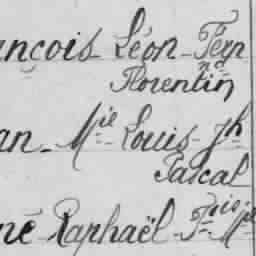 ançois Léon-Fern
nd
Florentin
an-Mie Louis-Jh
Pascal
né Raphaël-Fçis-Mie